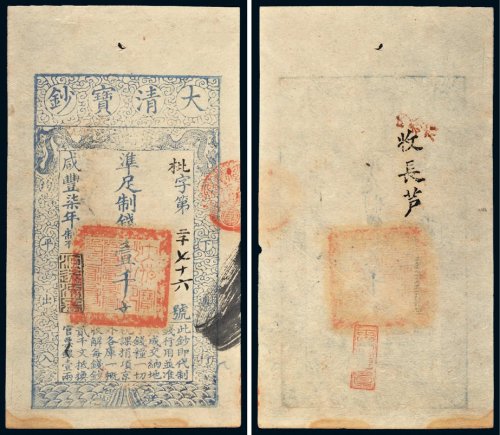 大清寶鈔
枇字第二千七十六號
準足制錢壹千文
咸豐柒年
平出入
此鈔即代制
錢行用並准
按成交納地
丁錢糧一切
稅課捐項京
外各庫一概
收解每錢鈔
貳千文抵換
官票銀壹兩
收長芦